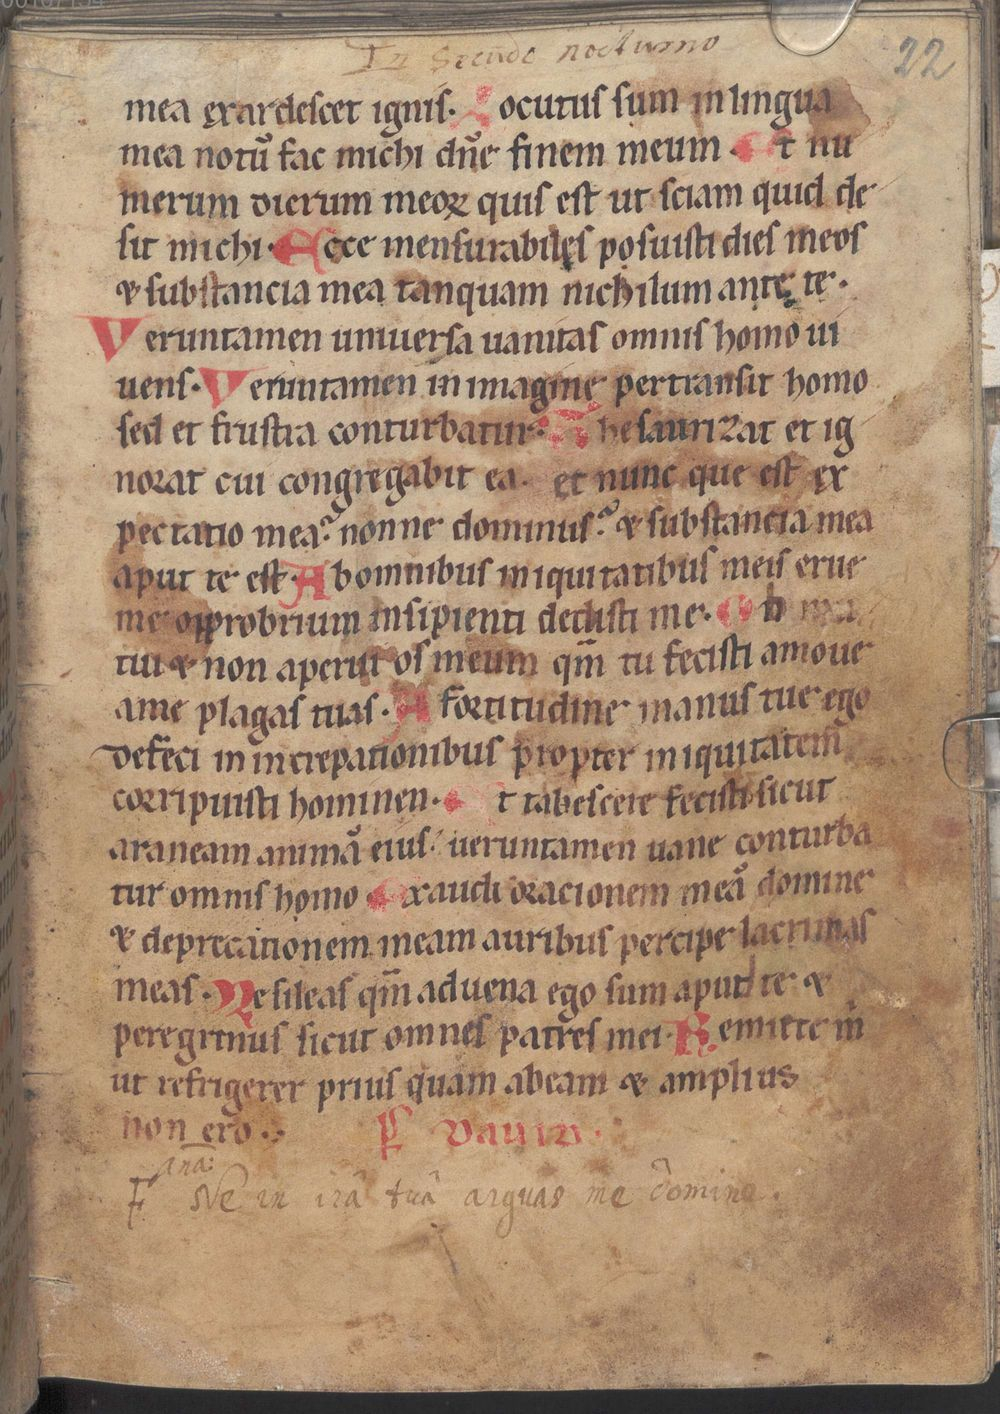 In secūdo nocturno
22
mea exardescet ignis. Locutus sum in lingua
mea notū fac michi dn̄e finem meum. Et nu
merum dierum meoꝝ quis est ut sciam quid de
sit michi. Ecce mensurabiles posuisti dies meos
& substancia mea tanquam nichilum ante te.
Veruntamen uniuersa uanitas omnis homo ui
uens. Veruntamen in imagine pertransit homo
sed et frustra conturbatur. Thesaurizat et ig
norat cui congregabit ea. et nunc que est ex
pectatio mea? nonne dominus? & substancia mea
aput te est. Ab omnibus iniquitatibus meis erue
me opprobrium insipienti dedisti me. Ob
tui & non aperui os meum qm̄ tu fecisti amoue
a me plagas tuas. A fortitudine manus tue ego
defeci in increpationibus propter iniquitatem
corripuisti hominen. Et tabescere fecisti sicut
araneam animā eius. ueruntamen uane conturba
tur omnis homo Exaudi oracionem meā domine
& deprecationem meam auribus percipe lacrimas
meas. Ne sileas qm̄ aduena ego sum aput te &
peregrinus sicut omnes patres mei. Remitte m̄
ut refrigerer prius quam abeam & amplius
non ero. ps̄ dauid.
ana:
F Ne in irā tuā arguas me domine.